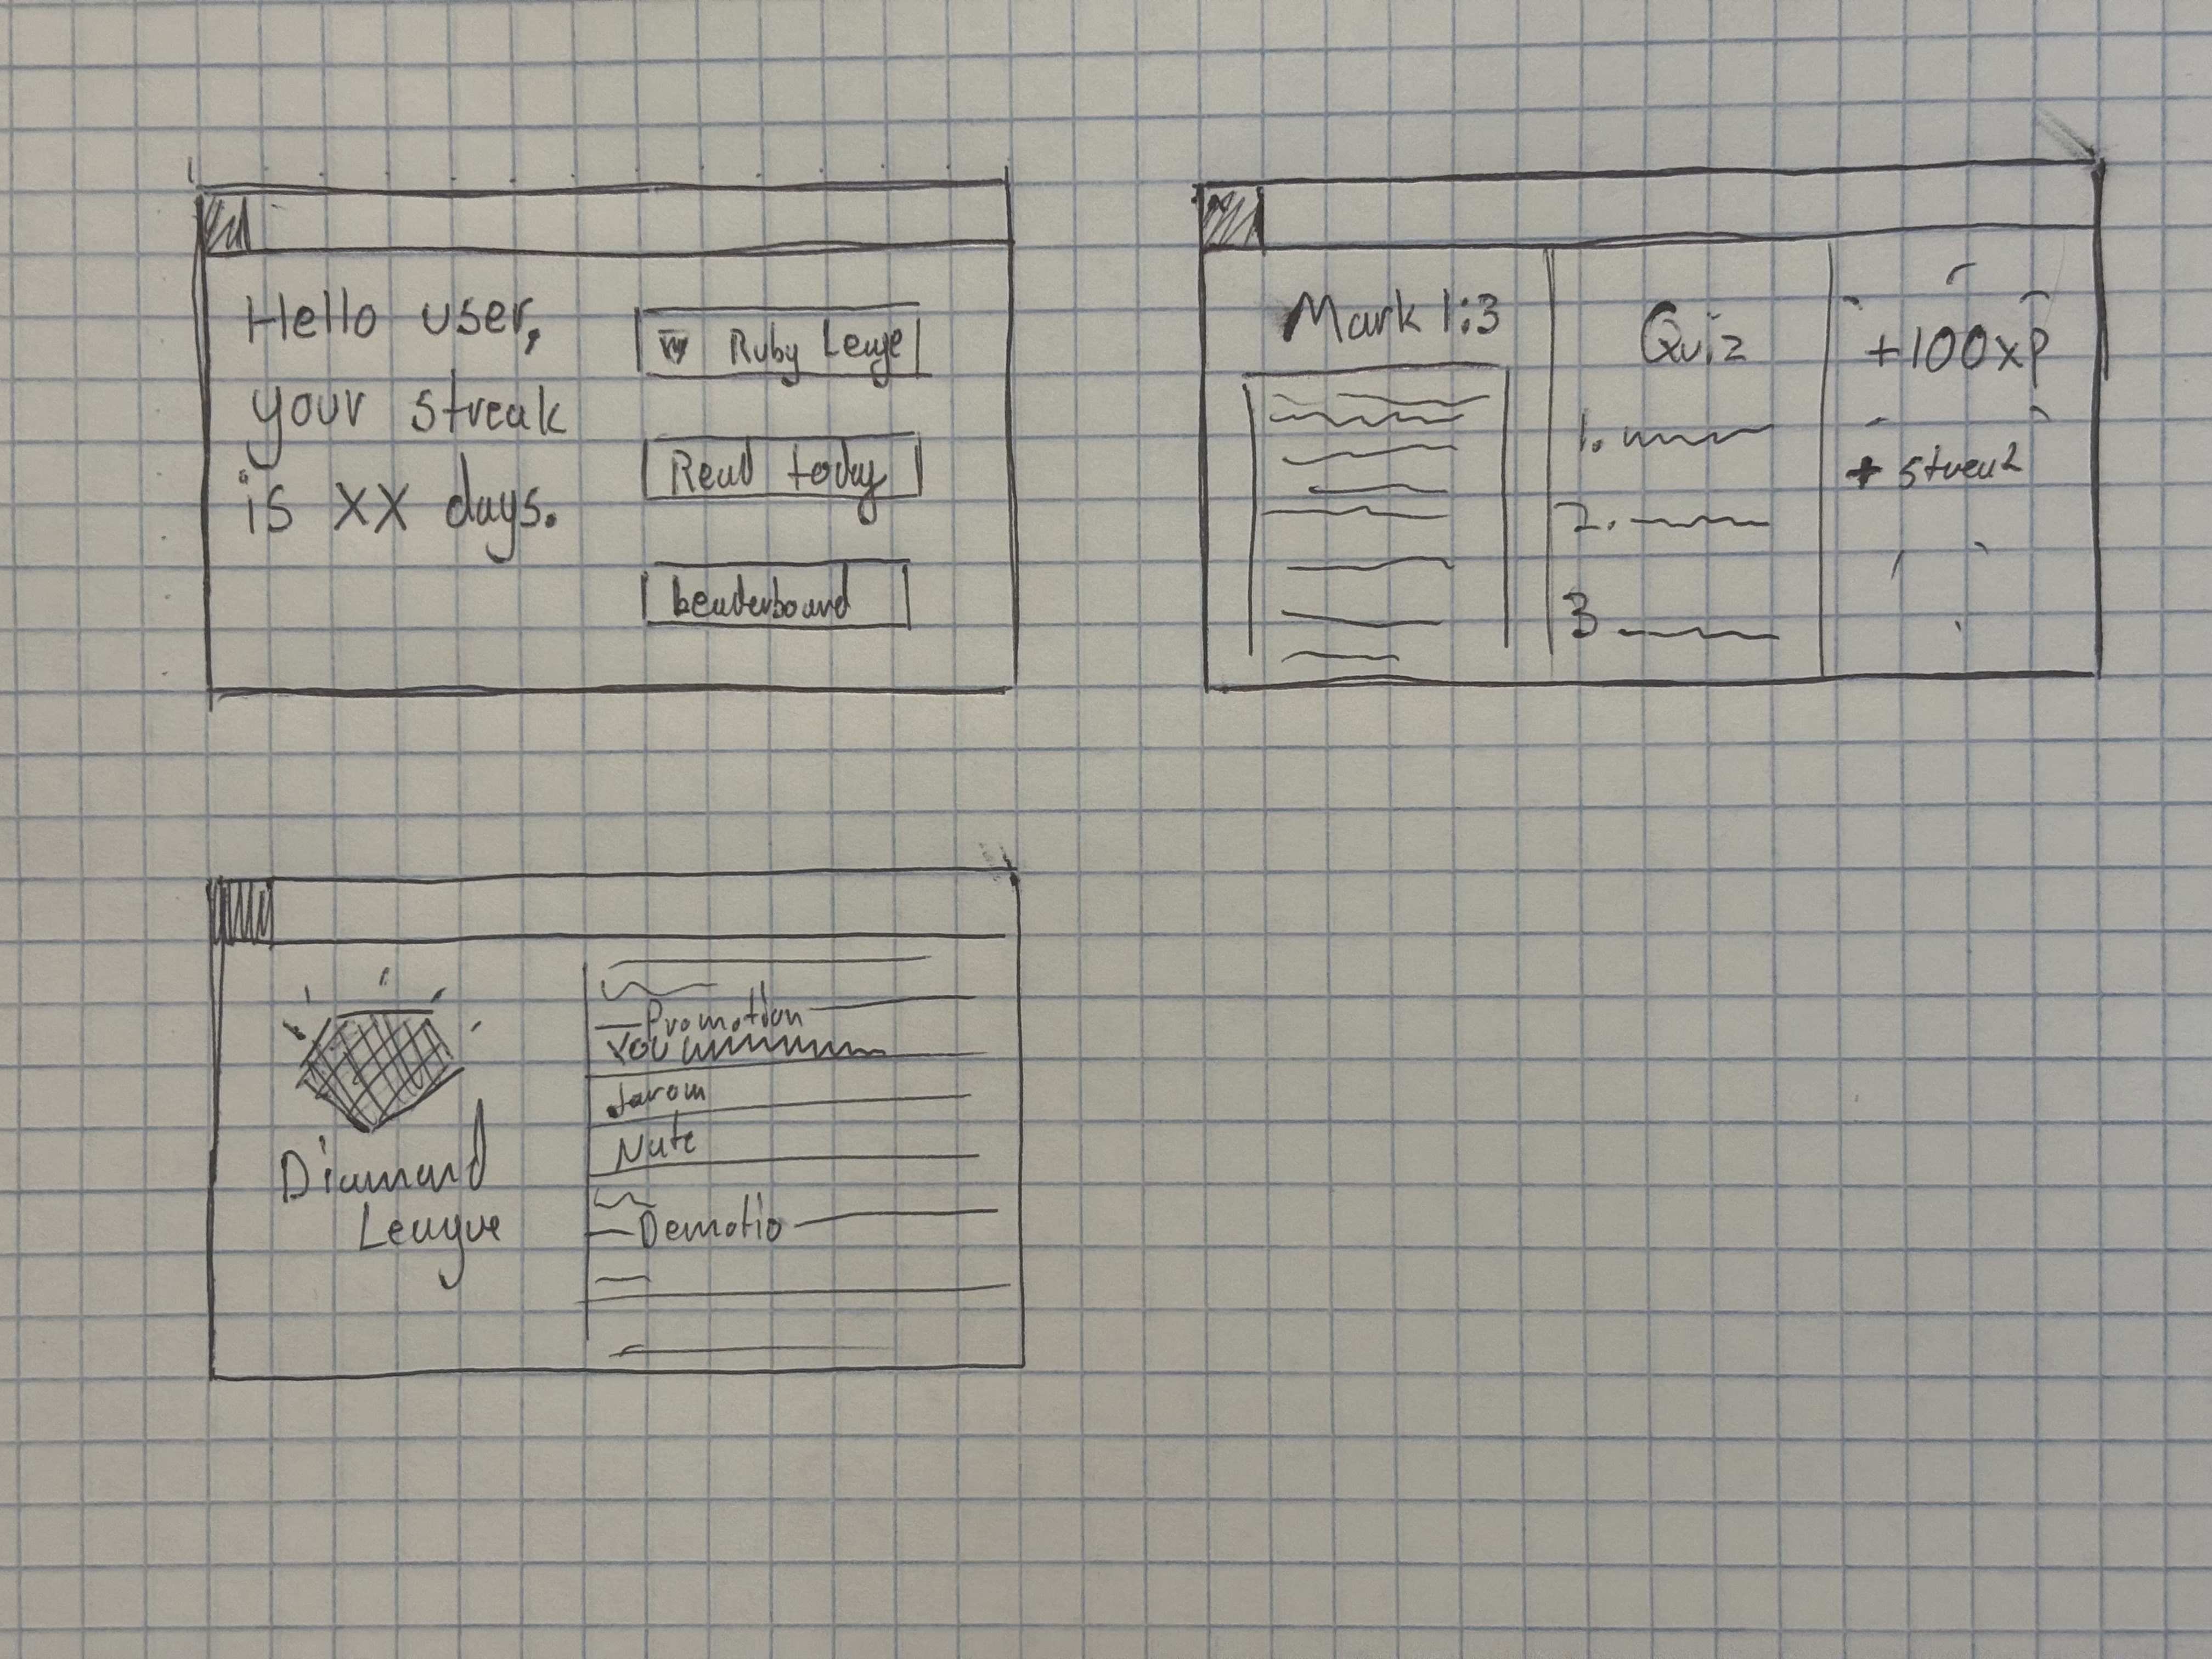 Hello user,
your streak
is XX days.
Ruby Leage
Read today
Leaderboard
Mark 1:3
Quiz
1.
2.
3
+100xp
+ streak
Diamand
League
Promotion
You
Jarom
Nate
Demotio